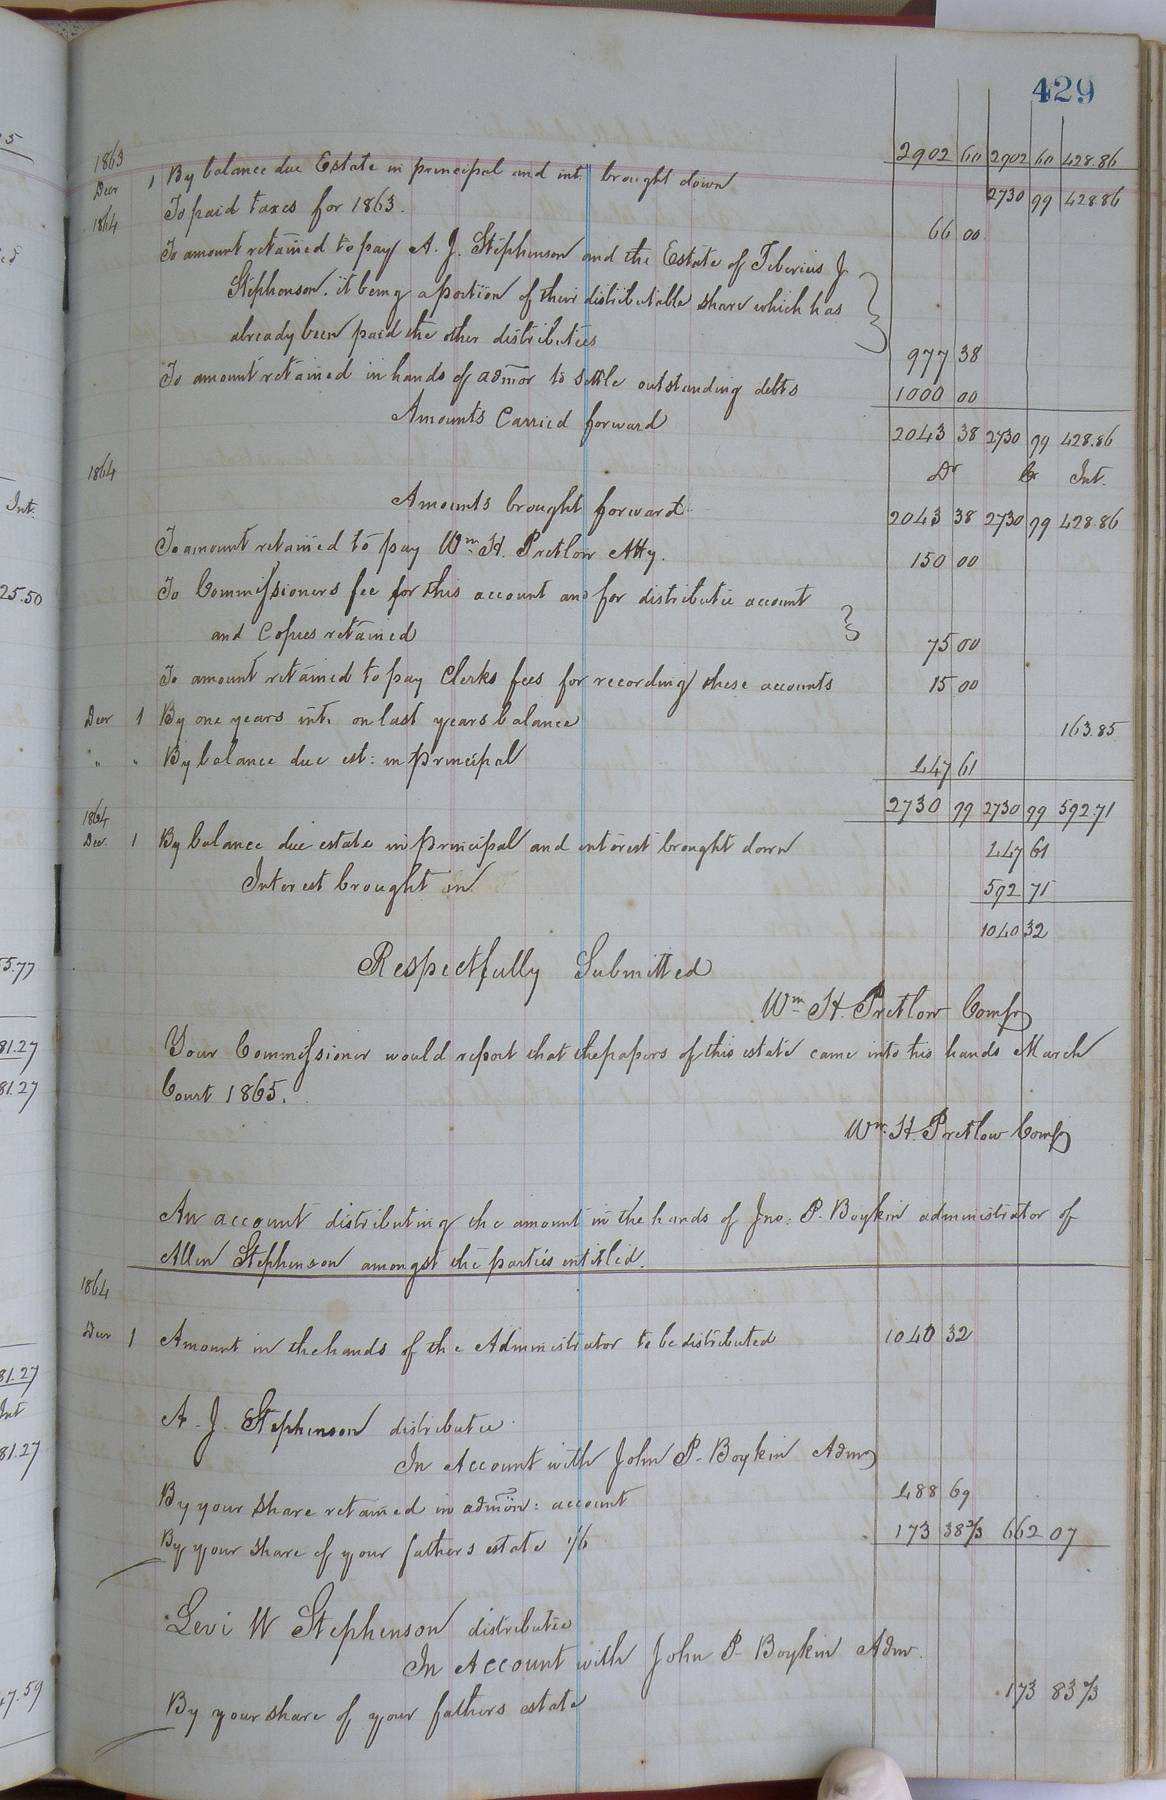 429
2902 60 2902 60 428.86
1863
Decr 1 By balance due Estate in principal and int. brought down 2730 99 428 86
1864 To paid taxes for 1863. 66 00
To amount retained to pay A. J. Stephenson and the Estate of Tiberius J.
Stephenson. it being a portion of their distributable share which has
already been paid the other distributees 977 38
To amount retained in hands of admor to settle outstanding debts 1000 00
Amounts Carried forward 2043 38 2730 99 428.86
1864 Dr Cr Int.
Amounts brought forward 2043 38 2730 99 428.86
To amount retained to pay Wm H. Pretlow Atty. 150 00
To Commissioners fee for this account and for distributee account
and Copies retained 75 00
To amount retained to pay Clerks fees for recording these accounts 15 00
Decr 1 By one years int. on last years balance 163.85
" " By balance due est: in principal 447 61
2730 99 2730 99 592.71
1864
Dec. 1 By balance due estate in principal and interest brought down 447 61
Interest brought in 592 71
1040 32
Respectfully Submitted
Wm H. Pretlow Comsr
Your Commissioner would report that the papers of this estate came into his hands March
Court 1865.
Wm. H. Pretlow Comsr
An account distributing the amount in the hands of Jno: P. Boykin administrator of
Allen Stephenson amongst the parties intitled.
1864
Decr 1 Amount in the hands of the Administrator to be distributed 1040 32
A. J. Stephenson distributee
In Account with John P. Boykin Admr
By your share retained in admon: account 488 69
By your share of your fathers estate 1/6 173 38 2/3 662 07
Levi W Stephenson distributee
In Account with John P. Boykin Admr.
By your share of your fathers estate 173 83 2/3
Int.
25.50
55.77
81.27
81.27
81.27
Int
81.27
47.59